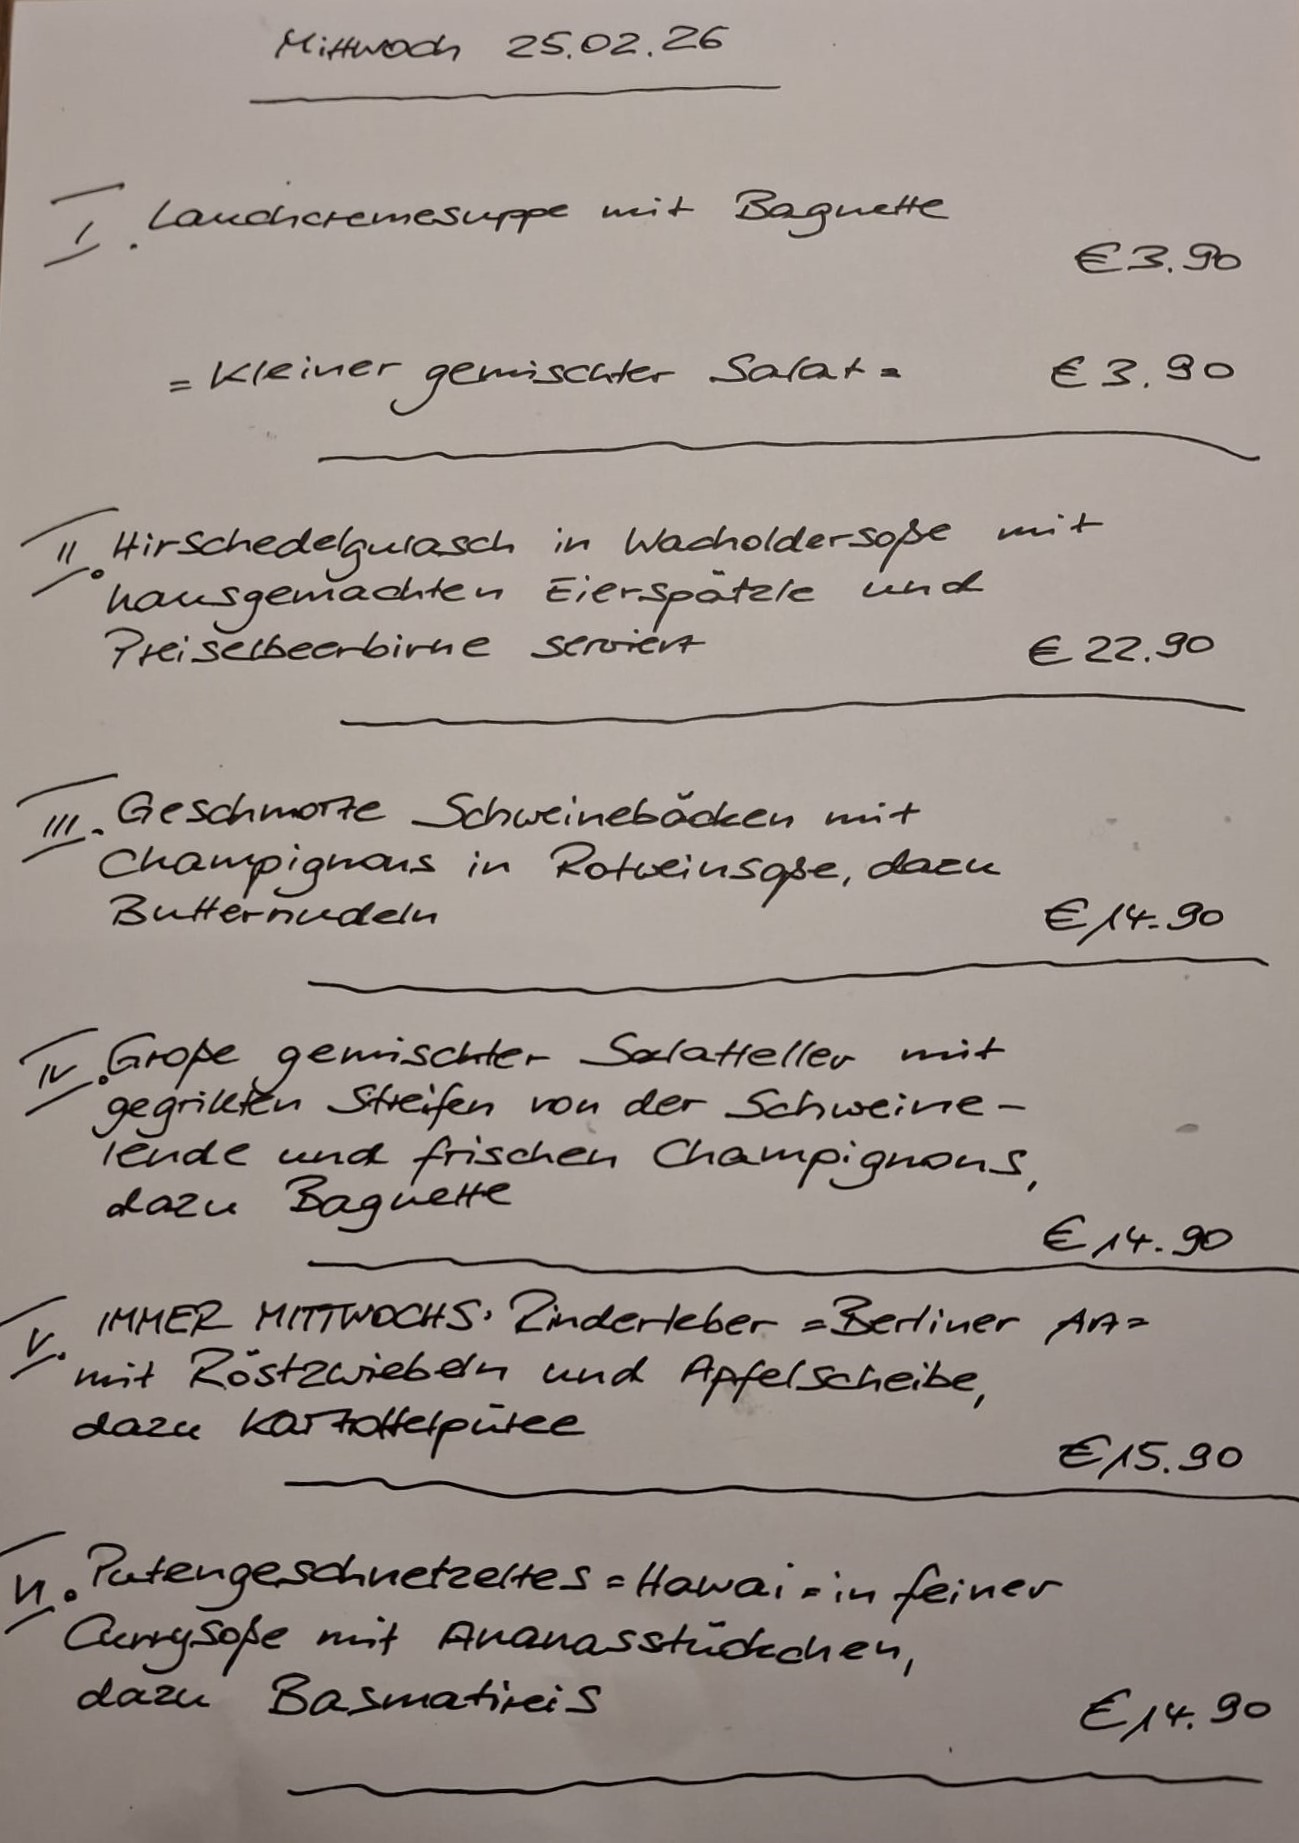 Mittwoch 25.02.26
I. Lauchcremesuppe mit Baguette
€ 3.90
= Kleiner gemischter Salat = € 3.90
II. Hirschedelgulasch in Wacholdersoße mit
hausgemachten Eierspätzle und
Preiselbeerbirne serviert € 22.90
III. Geschmorte Schweinebäcken mit
Champignons in Rotweinsoße, dazu
Butternudeln € 14.90
IV. Große gemischter Salatteller mit
gegrillten Streifen von der Schweine-
lende und frischen Champignons,
dazu Baguette
€ 14.90
V. IMMER MITTWOCHS: Rinderleber = Berliner Art =
mit Röstzwiebeln und Apfelscheibe,
dazu Kartoffelpüree
€ 15.90
VI. Putengeschnetzeltes = Hawai = in feiner
Currysoße mit Ananasstückchen,
dazu Basmatireis € 14.90